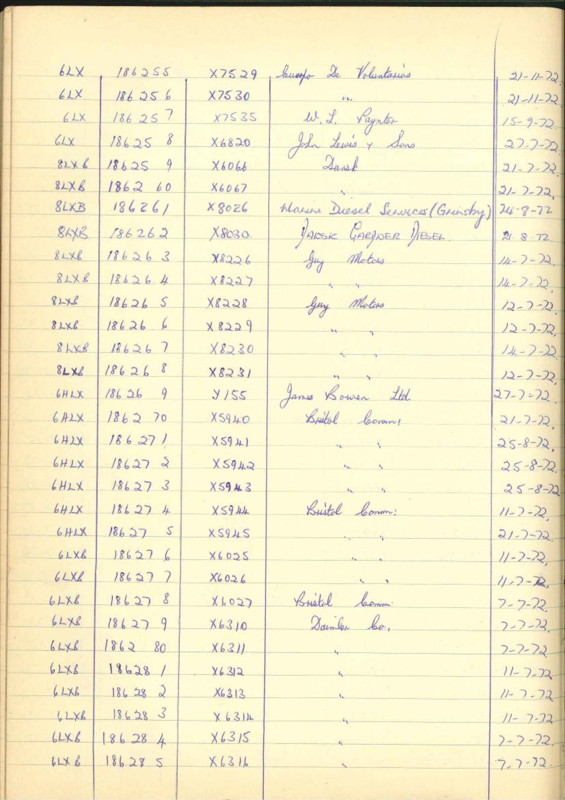 6LX 186255 X7529 Cuerpo De Voluntarios 21-11-72.
6LX 186256 X7530 " 21-11-72.
6LX 186257 X7535 W. L. Paynter 15-9-72.
6LX 186258 X6820 John Lewis & Sons 27-7-72.
8LXB 186259 X6066 Danek 21-7-72.
8LXB 186260 X6067 " 21-7-72.
8LXB 186261 X8026 Marine Diesel Services (Grimsby) 24-8-72
8LXB 186262 X8030 GARDNER DIESEL. 21 8 72
8LXB 186263 X8226 Guy Motors 14-7-72.
8LXB 186264 X8227 " " 14-7-72.
8LXB 186265 X8228 Guy Motors 12-7-72.
8LXB 186266 X8229 " " 12-7-72.
8LXB 186267 X8230 " " 14-7-72.
8LXB 186268 X8231 " " 12-7-72.
6HLX 186269 Y155 James Bowen Ltd 27-7-72.
6HLX 186270 X5940 Bristol Comm: 21-7-72.
6HLX 186271 X5941 " " 25-8-72.
6HLX 186272 X5942 " " 25-8-72.
6HLX 186273 X5943 " " 25-8-72
6HLX 186274 X5944 Bristol Comm: 11-7-72.
6HLX 186275 X5945 " " 21-7-72.
6LXB 186276 X6025 " " 11-7-72.
6LXB 186277 X6026 " " 11-7-72.
6LXB 186278 X6027 Bristol Comm 7-7-72.
6LXB 186279 X6310 Daimler Co. 7-7-72.
6LXB 186280 X6311 " 7-7-72.
6LXB 186281 X6312 " 11-7-72
6LXB 186282 X6313 " 11-7-72.
6LXB 186283 X6314 " 11-7-72
6LXB 186284 X6315 " 7-7-72.
6LXB 186285 X6316 " 7-7-72.